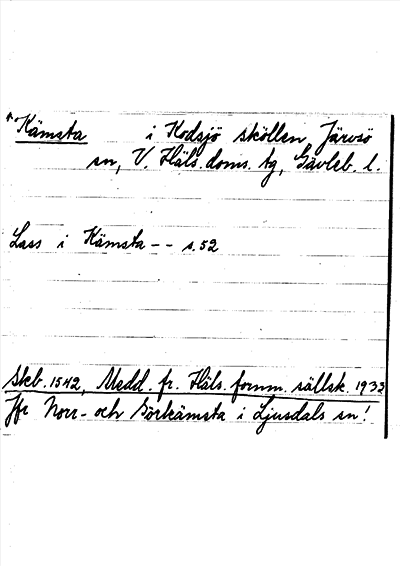 *Kämsta i Kodsjö skölln, Järvsö
sn, V. Häls. doms. tg, Gävleb. l.
Lass i Kämsta -- s. 52
Skb. 1542, Medd. fr. Häls. fornm. sällsk. 1932
Jfr Norr- och Sörkämsta i Ljusdals sn!